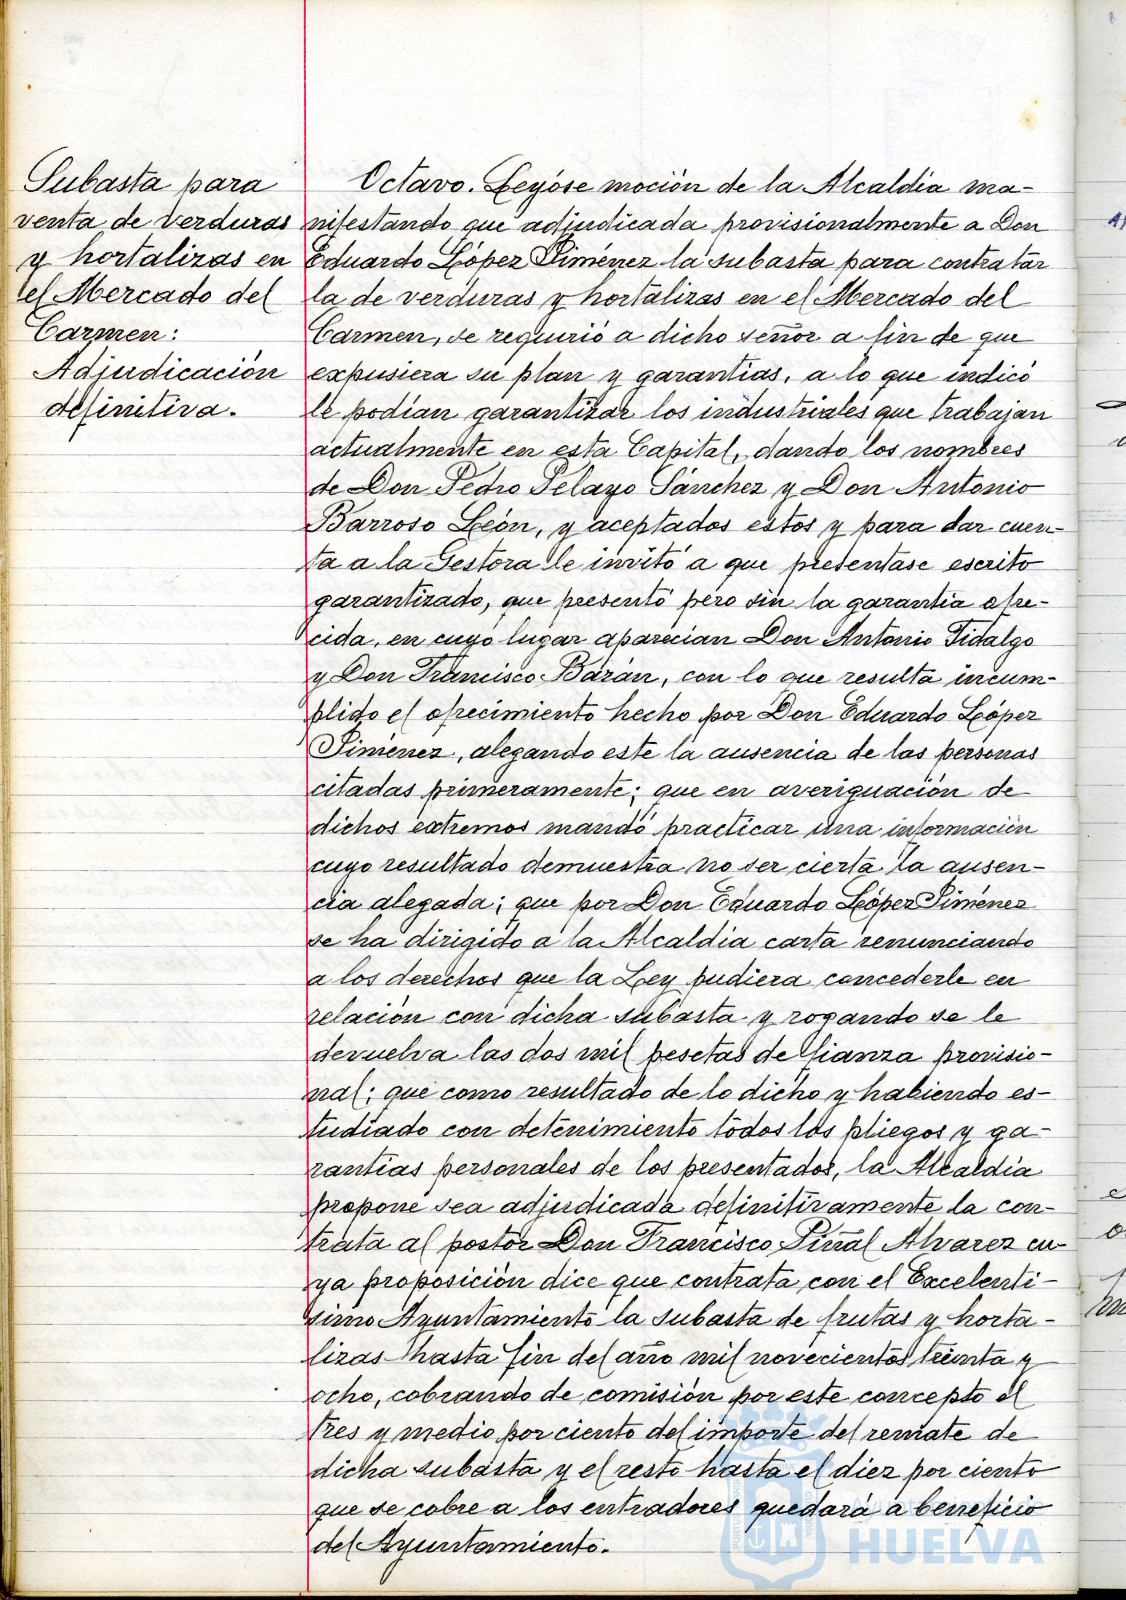 Subasta para
venta de verduras
y hortalizas en
el Mercado del
Carmen:
Adjudicación
definitiva.
Octavo. Leyóse moción de la Alcaldía ma-
nifestando que adjudicada provisionalmente a Don
Eduardo López Jiménez la subasta para contratar
la de verduras y hortalizas en el Mercado del
Carmen, se requirió a dicho señor a fin de que
expusiera su plan y garantías, a lo que indicó
le podían garantizar los industriales que trabajan
actualmente en esta Capital, dando los nombres
de Don Pedro Pelayo Sánchez y Don Antonio
Barroso León, y aceptados estos y para dar cuen-
ta a la Gestora le invitó a que presentase escrito
garantizado, que presentó pero sin la garantía ofre-
cida, en cuyo lugar aparecían Don Antonio Fidalgo
y Don Francisco Bazán, con lo que resulta incum-
plido el ofrecimiento hecho por Don Eduardo López
Jiménez, alegando este la ausencia de las personas
citadas primeramente; que en averiguación de
dichos extremos mandó practicar una información
cuyo resultado demuestra no ser cierta la ausen-
cia alegada; que por Don Eduardo López Jiménez
se ha dirigido a la Alcaldía carta renunciando
a los derechos que la Ley pudiera concederle en
relación con dicha subasta y rogando se le
devuelva las dos mil pesetas de fianza provisio-
nal; que como resultado de lo dicho y habiendo es-
tudiado con detenimiento todos los pliegos y ga-
rantías personales de los presentados, la Alcaldía
propone sea adjudicada definitivamente la con-
trata al postor Don Francisco Piñal Alvarez cu-
ya proposición dice que contrata con el Excelentí-
simo Ayuntamiento la subasta de frutas y horta-
lizas hasta fin del año mil novecientos treinta y
ocho, cobrando de comisión por este concepto el
tres y medio por ciento del importe del remate de
dicha subasta y el resto hasta el diez por ciento
que se cobre a los entradores quedará a beneficio
del Ayuntamiento.
HUELVA